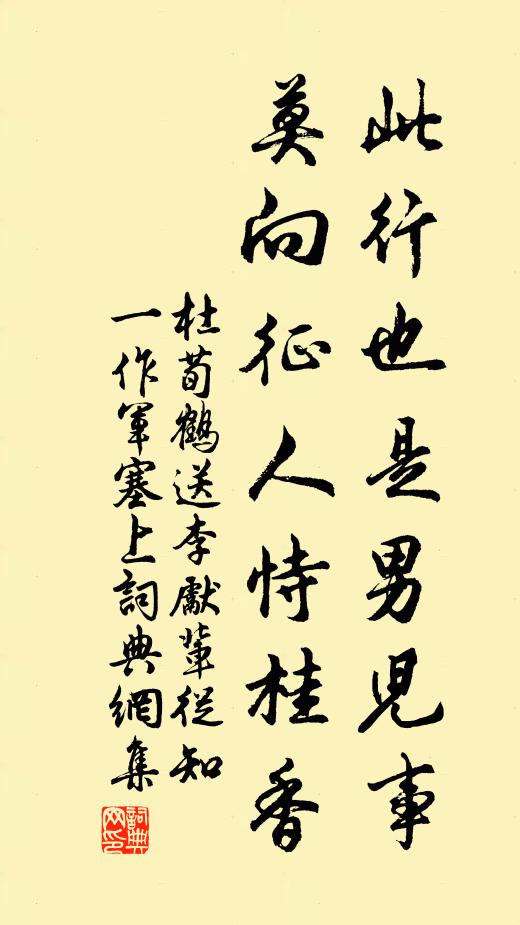 此行也是男児事
莫向征人恃桂香
杜荀鶴送李獻輩從知
一作軍塞上詞典網集
詞典
网印